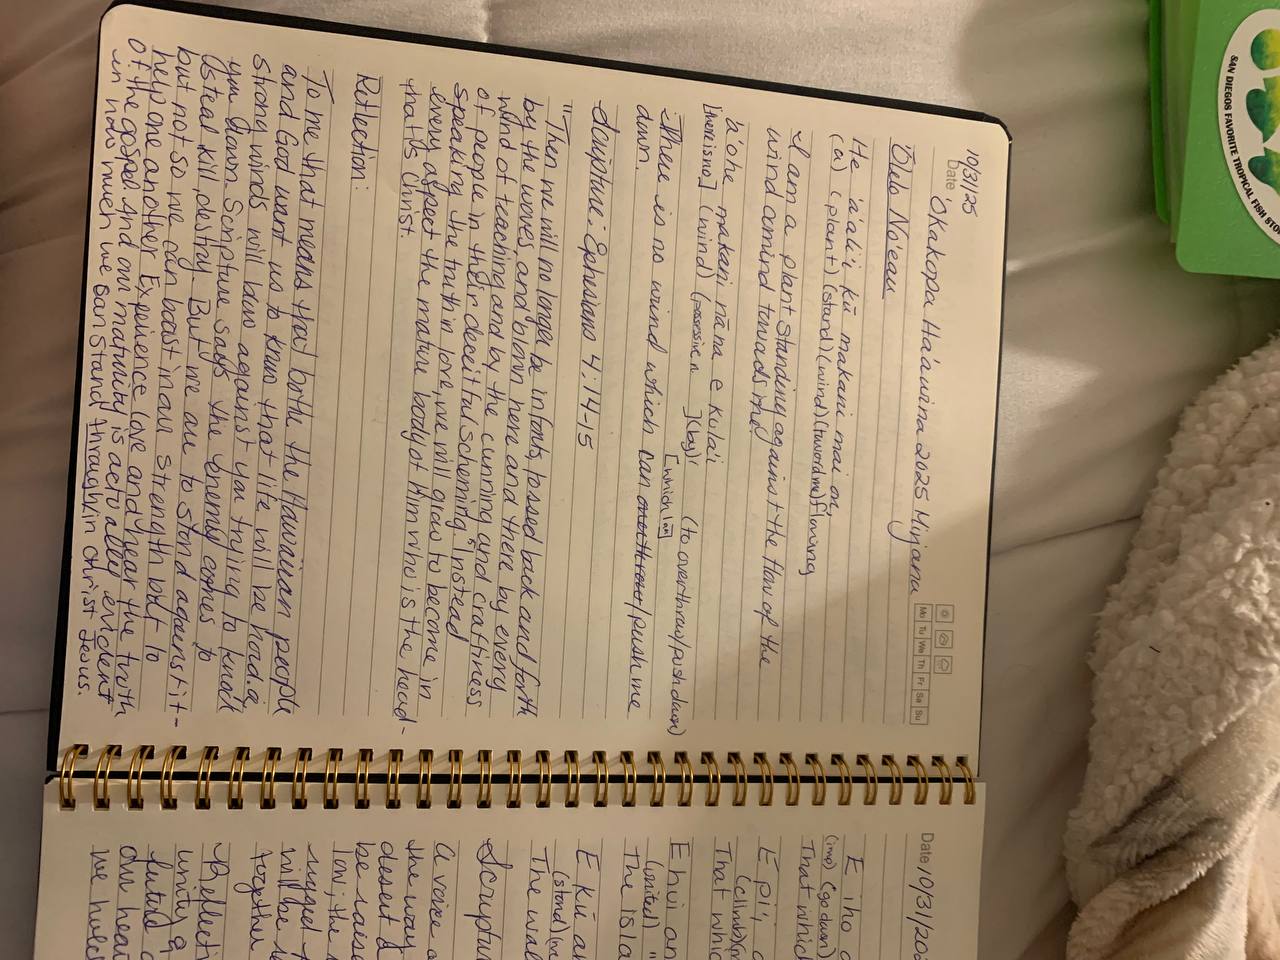 10/31/25
Date 'Okakopa Ha'awina 2025 Minjamu
Mo Tu We Th Fr Sa Su
'Ōlelo No'eau
He 'a'ali'i kū makani mai au
(a) (plant) (stand) (wind) (toward me) flowing
I am a plant standing against the flow of the
wind comind towards me!
'a'ohe makani nāna e kula'i
[there is no] (wind) (possessive n ] (by) (to overthrow/push down)
[which]
There is no wind which can overthrow/push me
down.
Scripture: Ephesians 4:14-15
"Then we will no longer be infants, tossed back and forth
by the waves, and blown here and there by every
wind of teaching and by the cunning and craftiness
of people in their deceitful scheming. Instead
speaking the truth in love, we will grow to become in
every aspect the mature body of Him who is the head-
that is Christ.
Reflection:
To me that means that both the Hawaiian people
and God want us to know that life will be hard,
strong winds will law against you trying to knock
you down. Scripture says the enemy comes to
steal kill destroy. But we are to stand against it-
but not so we can boast in our strength but to
help one another Experience love and hear the truth
of the gospel. And our maturity is actually evident
in how much we can stand through in Christ Jesus.
Date 10/31/202
E iho a
(imp) (go down)
That which
E pi'i a
(climb)
That whic
E hui an
(united)
The isla
E kū a
(stand)
The wal
Scriptur
A voice o
the way
desert
be raise
low; the
rugged
will be
together
Reflecti
unity
future
our hear
we
SAN DIEGOS FAVORITE TROPICAL FISH STO